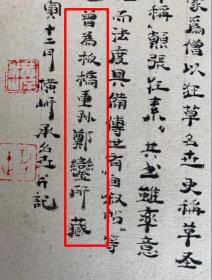 家為僧以狂草名世史稱草聖
稱顛張狂素。其書雖率意
而法度具備傳世有自叙帖等
曾為板橋重孫鄭鑾所藏
寅十二月 承名并記